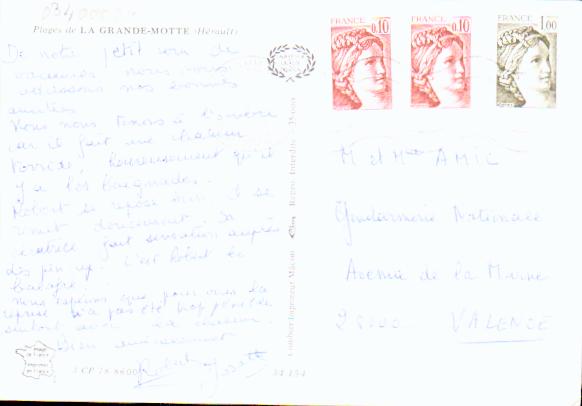 Plages de LA GRANDE-MOTTE (Hérault)
De notre petit coin de
vacances nous vous
adressons nos bonnes
amitiés
Nous nous tenons à l'ombre
car il fait une chaleur
torride, heureusement qu'il
y a les baignades.
Robert se repose bien, il se
remet doucement. Sa
cicatrice fait sensation auprès
des pin up. C'est Robert le
balafré.
Nous espérons que pour vous la
reprise n'a pas été trop pénible
surtout avec la chaleur.
Bien amicalement
Robert Josette
FRANCE 0,10
FRANCE 0,10
FRANCE 1,00
M et Mme AMIC
Gendarmerie Nationale
Avenue de la Marne
26000 VALENCE
Combier Imprimeur Macon
Reprod. Interdite
3 CP 78 8600
34 154